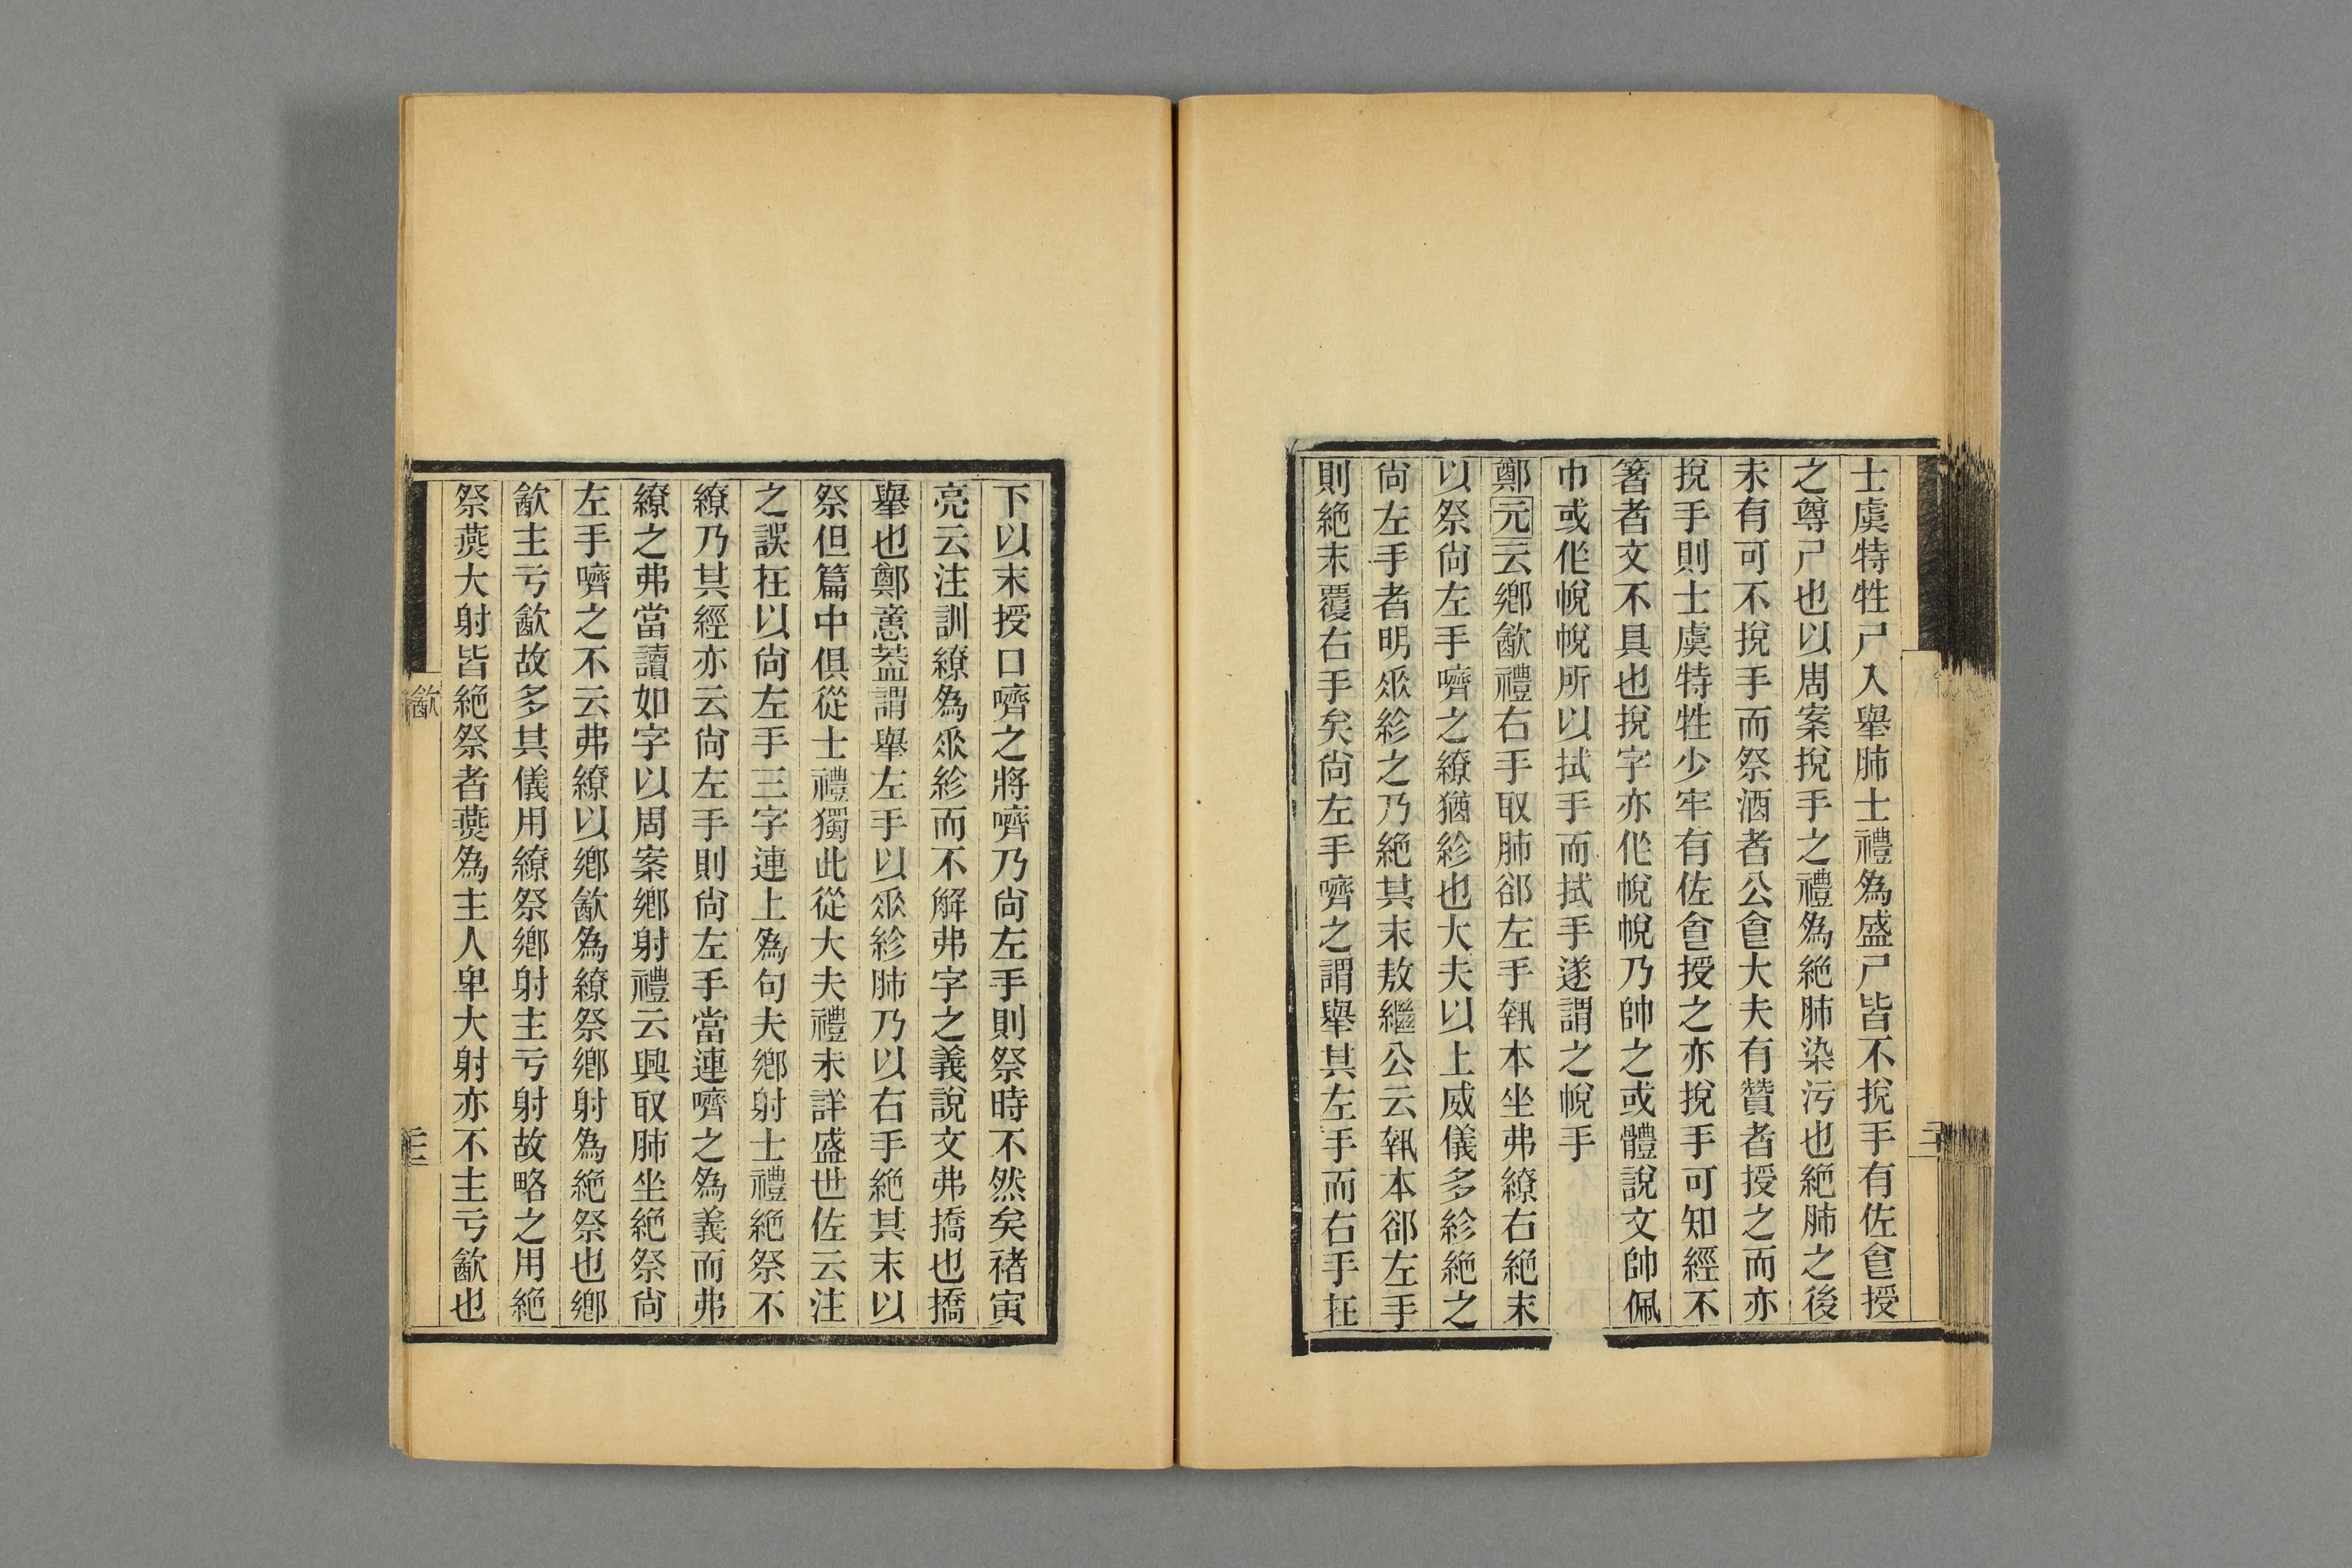 士虞特牲尸入舉肺士禮爲盛尸皆不挩手有佐㑹授
之尊尸也以周案挩手之禮爲絶肺染污也絶肺之後
未有可不挩手而祭酒者公㑹大夫有贊者授之而亦
挩手則士虞特牲少牢有佐㑹授之亦挩手可知經不
箸者文不具也挩字亦作帨帨乃帥之或體說文帥佩
巾或作帨帨所以拭手而拭手遂謂之帨手
鄭元云鄉㱃禮右手取肺郤左手執本坐弗繚右絶末
以祭尙左手嚌之繚猶紾也大夫以上威儀多紾絶之
尙左手者明𠂢紾之乃絶其末敖繼公云執本郤左手
則絶末覆右手矣尙左手嚌之謂舉其左手而右手在
下以末授口嚌之將嚌乃尙左手則祭時不然矣禇寅
亮云注訓繚爲𠂢紾而不解弗字之義說文弗撟也撟
舉也鄭意葢謂舉左手以𠂢紾肺乃以右手絶其末以
祭但篇中俱從士禮獨此從大夫禮未詳盛世佐云注
之誤在以尙左手三字連上爲句夫鄉射士禮絶祭不
繚乃其經亦云尙左手則尙左手當連嚌之爲義而弗
繚之弗當讀如字以周案鄉射禮云興取肺坐絶祭尙
左手嚌之不云弗繚以鄉㱃爲繚祭鄉射爲絶祭也鄉
㱃主亏㱃故多其儀用繚祭鄉射主亏射故略之用絶
祭燕大射皆絶祭者燕爲主人卑大射亦不主亏㱃也
㱃